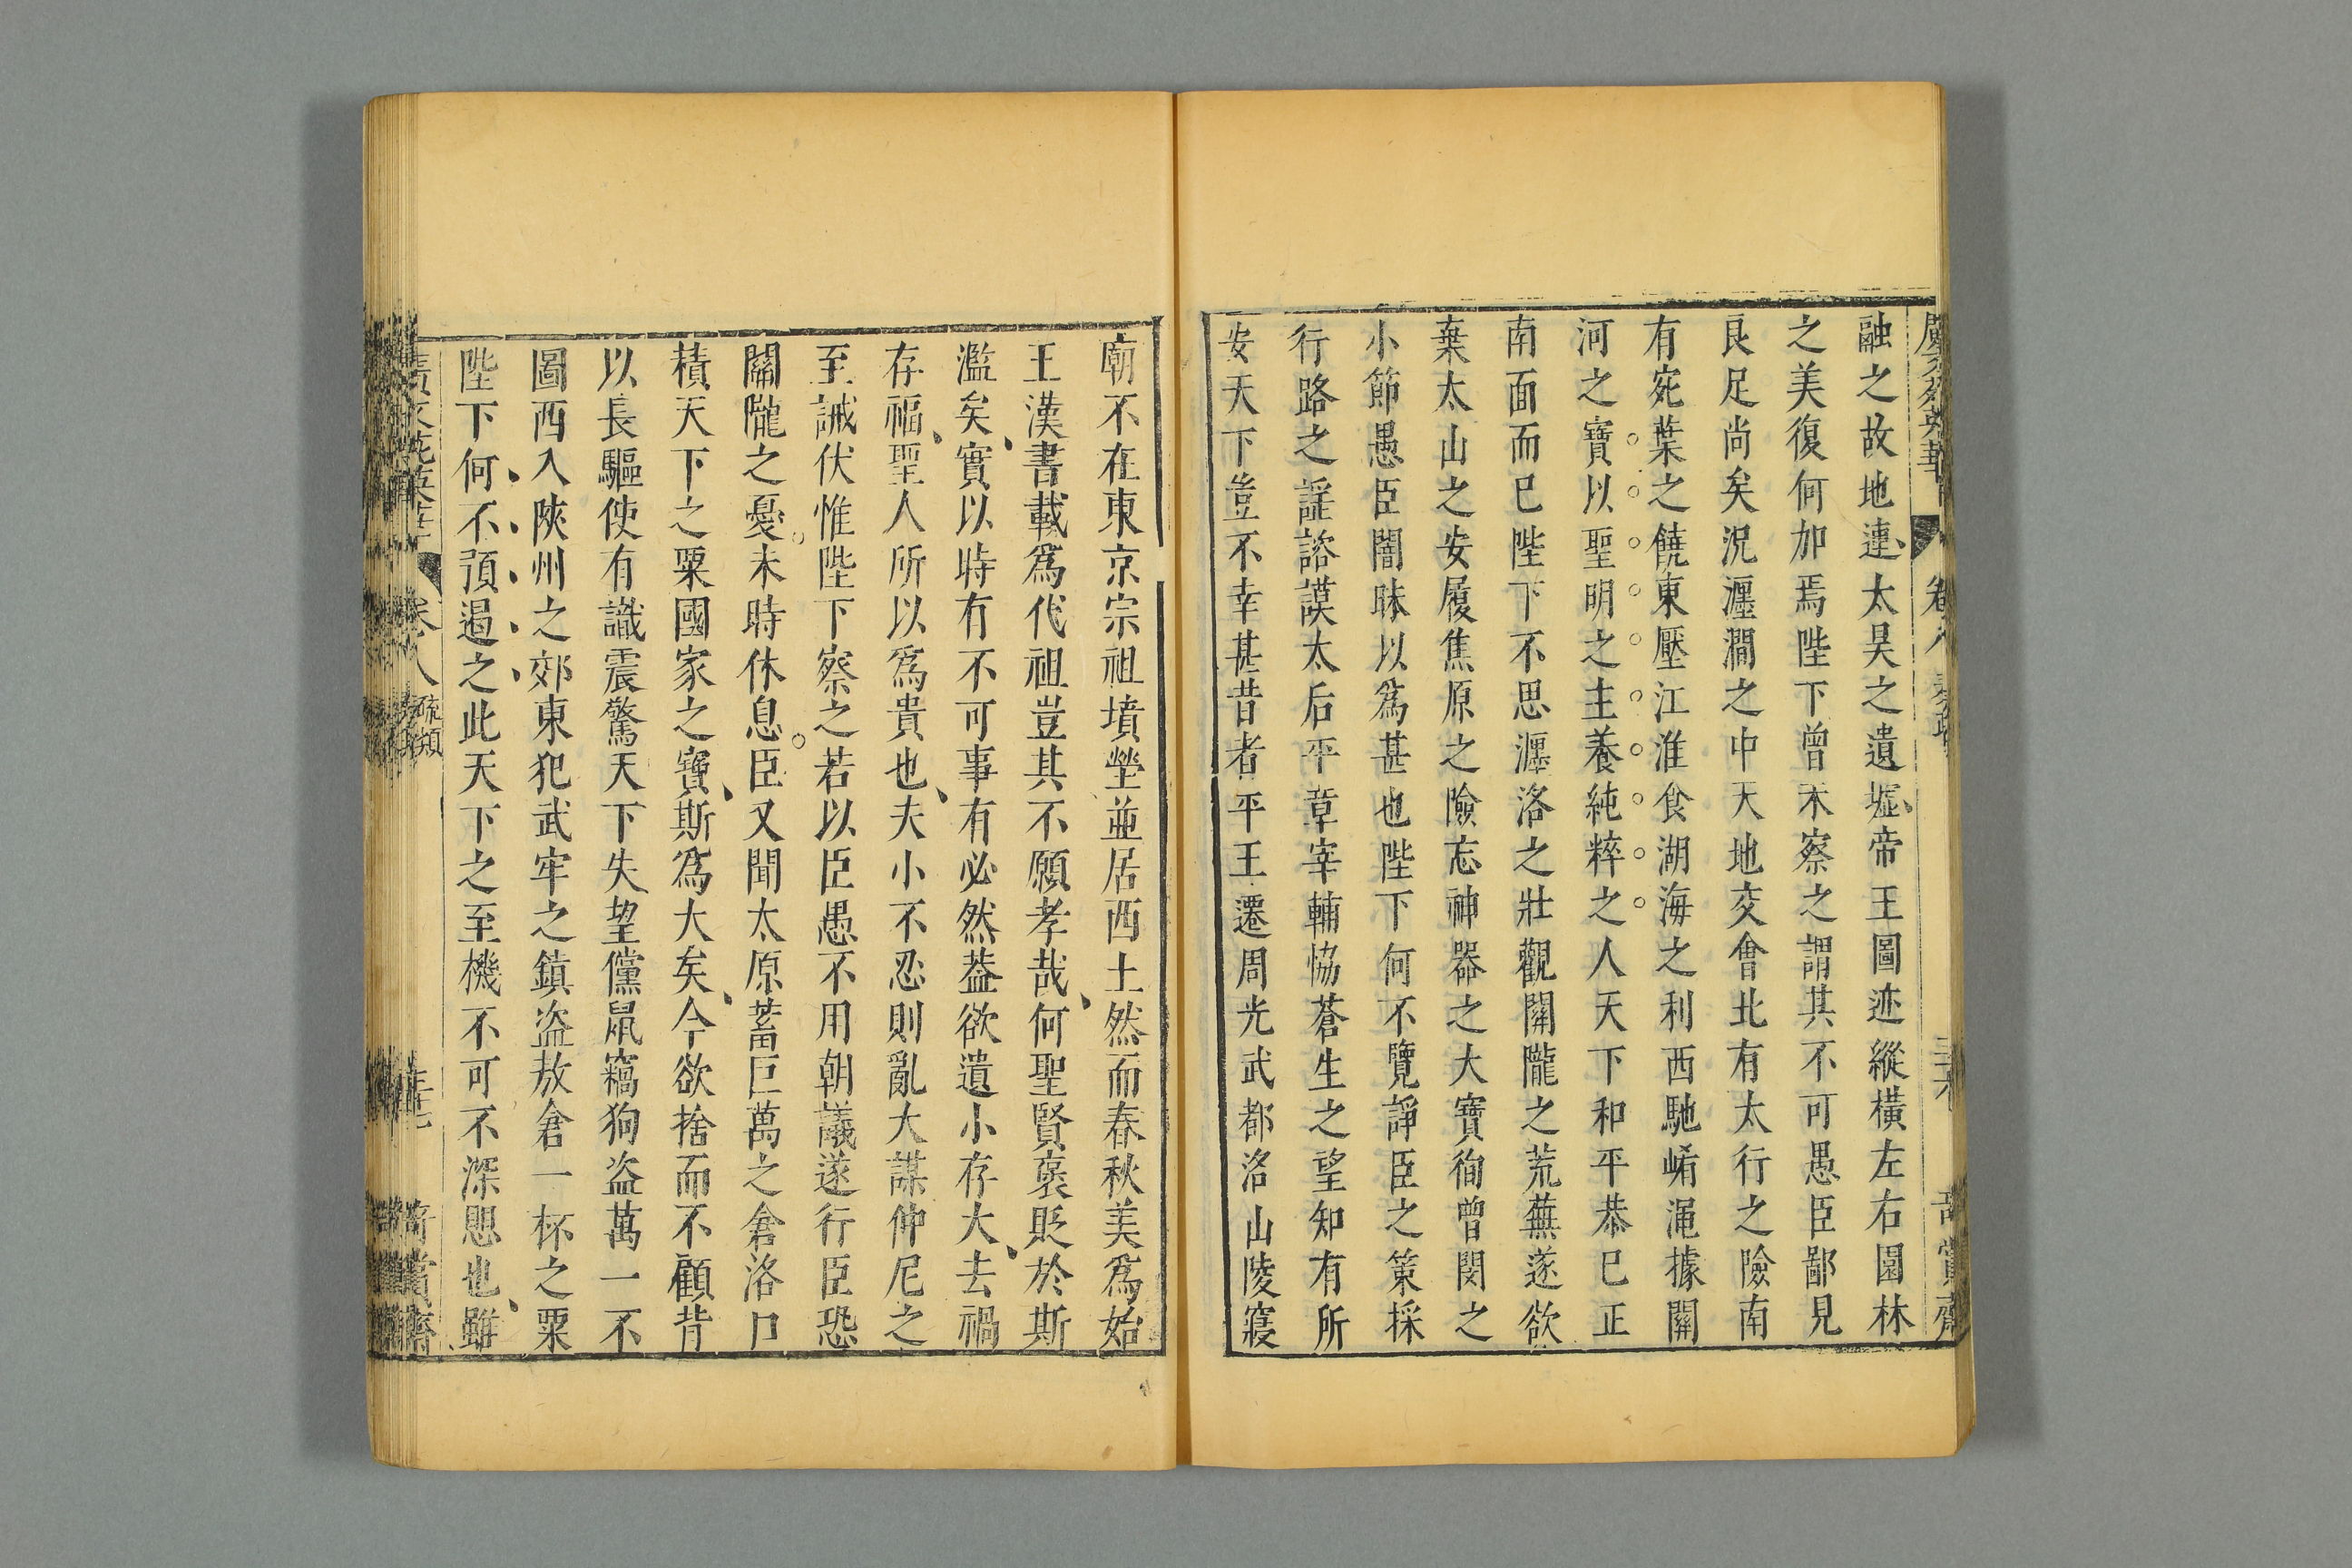 融之故地連太昊之遺墟帝王圖迹縱橫左右園林
之美復何加焉陛下曾未察之謂其不可愚臣鄙見
良足尚矣況瀍澗之中天地交會北有太行之險南
有宛葉之饒東壓江淮食湖海之利西馳崤澠據關
河之寶以聖明之主養純粹之人天下和平恭巳正
南面而巳陛下不思瀍洛之壯觀關隴之荒蕪遂欲
棄太山之安履焦原之險忘神器之大寶徇曾閔之
小節愚臣闇昧以爲甚也陛下何不覽諍臣之策採
行路之謠諮謨太后平章宰輔恊蒼生之望知有所
安天下豈不幸甚昔者平王遷周光武都洛山陵寢
廟不在東京宗祖墳塋並居西土然而春秋美爲始
王漢書載爲代祖豈其不願孝哉何聖賢褒貶於斯
濫矣實以時有不可事有必然葢欲遺小存大去禍
存福聖人所以爲貴也夫小不忍則亂大謀仲尼之
至誡伏惟陛下察之若以臣愚不用朝議遂行臣恐
關隴之憂未時休息臣又聞太原蓄巨萬之倉洛口
積天下之粟國家之寶斯爲大矣今欲捨而不顧背
以長驅使有識震驚天下失望儻鼠竊狗盜萬一不
圖西入陝州之郊東犯武牢之鎮盜敖倉一杯之粟
陛下何不預遏之此天下之至機不可不深思也雖
卷八